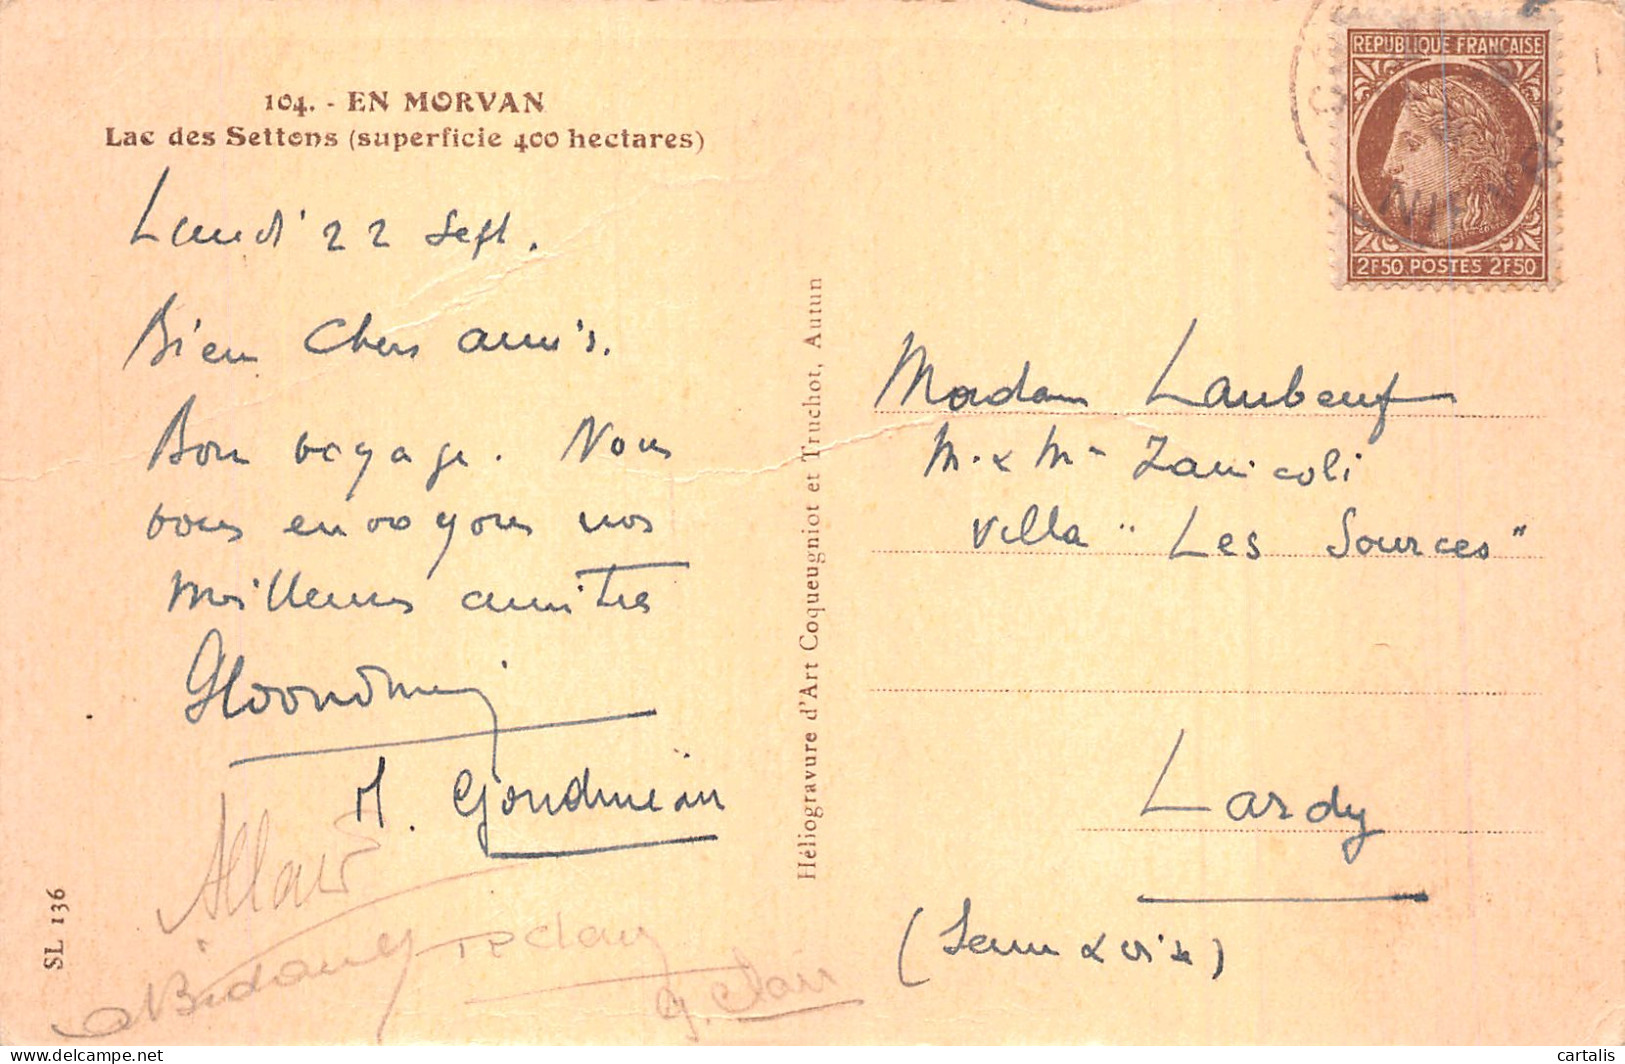 104. - EN MORVAN
Lac des Settons (superficie 400 hectares)
Lundi 22 Sept.
Bien Chers amis.
Bon voyage. Nous
vous envoyons nos
Meilleures amitiés
A. Gondmein
Allard
Bidault
G. Clair
SL 136
Héliogravure d'Art Coqueugniot et Truchot, Autun
REPUBLIQUE FRANÇAISE
2F50 POSTES 2F50
Madam Laubeuf
M. & Me Zanicoli
Villa "Les Sources"
Lardy
(Seine & Oise)
cartalis
delcampe.net